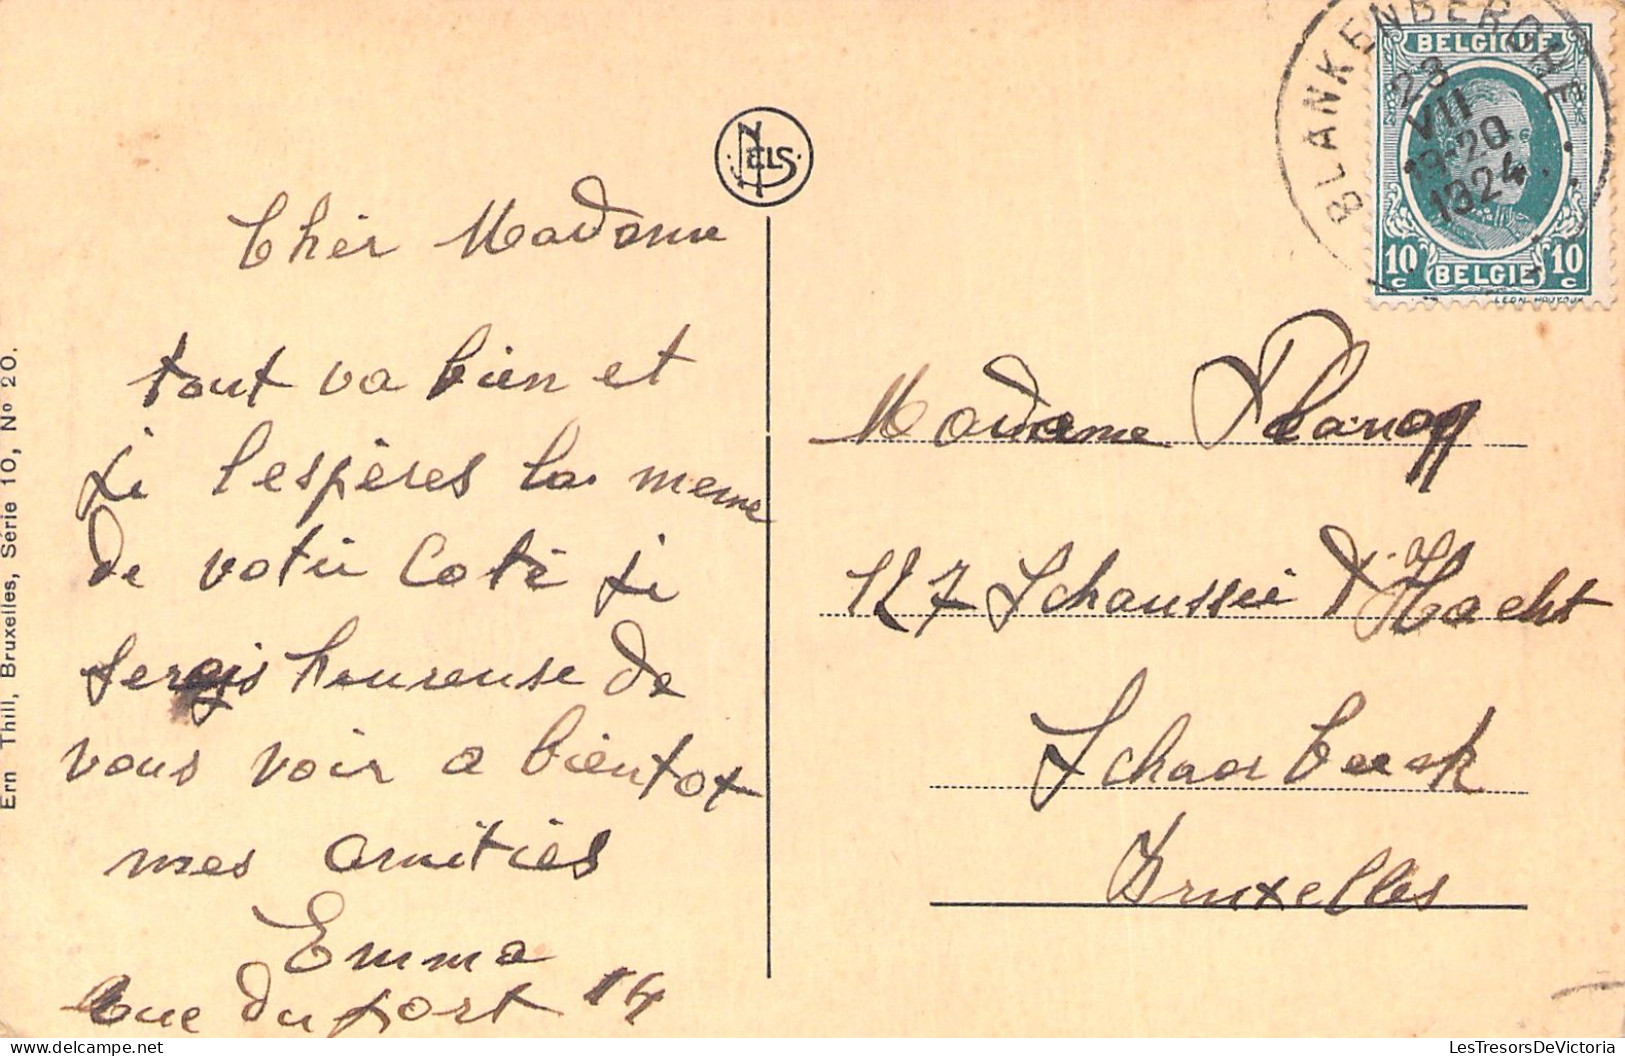 Chér Madame
tout va bien et
je l'espères la meme
de votre Coté je
serais heureuse de
vous voir a bientot
mes amitiés
Emma
Rue du port 14
NELS
Ern Thill, Bruxelles, Série 10, No 20.
BLANKENBERGHE
23
VII
18-20
1924
BELGIQUE
10 c BELGIE 10 c
LEON HOUYOUX
Madame
127 Schaussée d'Hacht
Schaerbeek
Bruxelles
LesTresorsDeVictoria